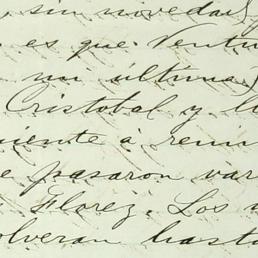 sin novedad
es que Ventu
mi última
Cristobal y l
iente á reun
e pasaron var
Florez. Los
olveran hasta